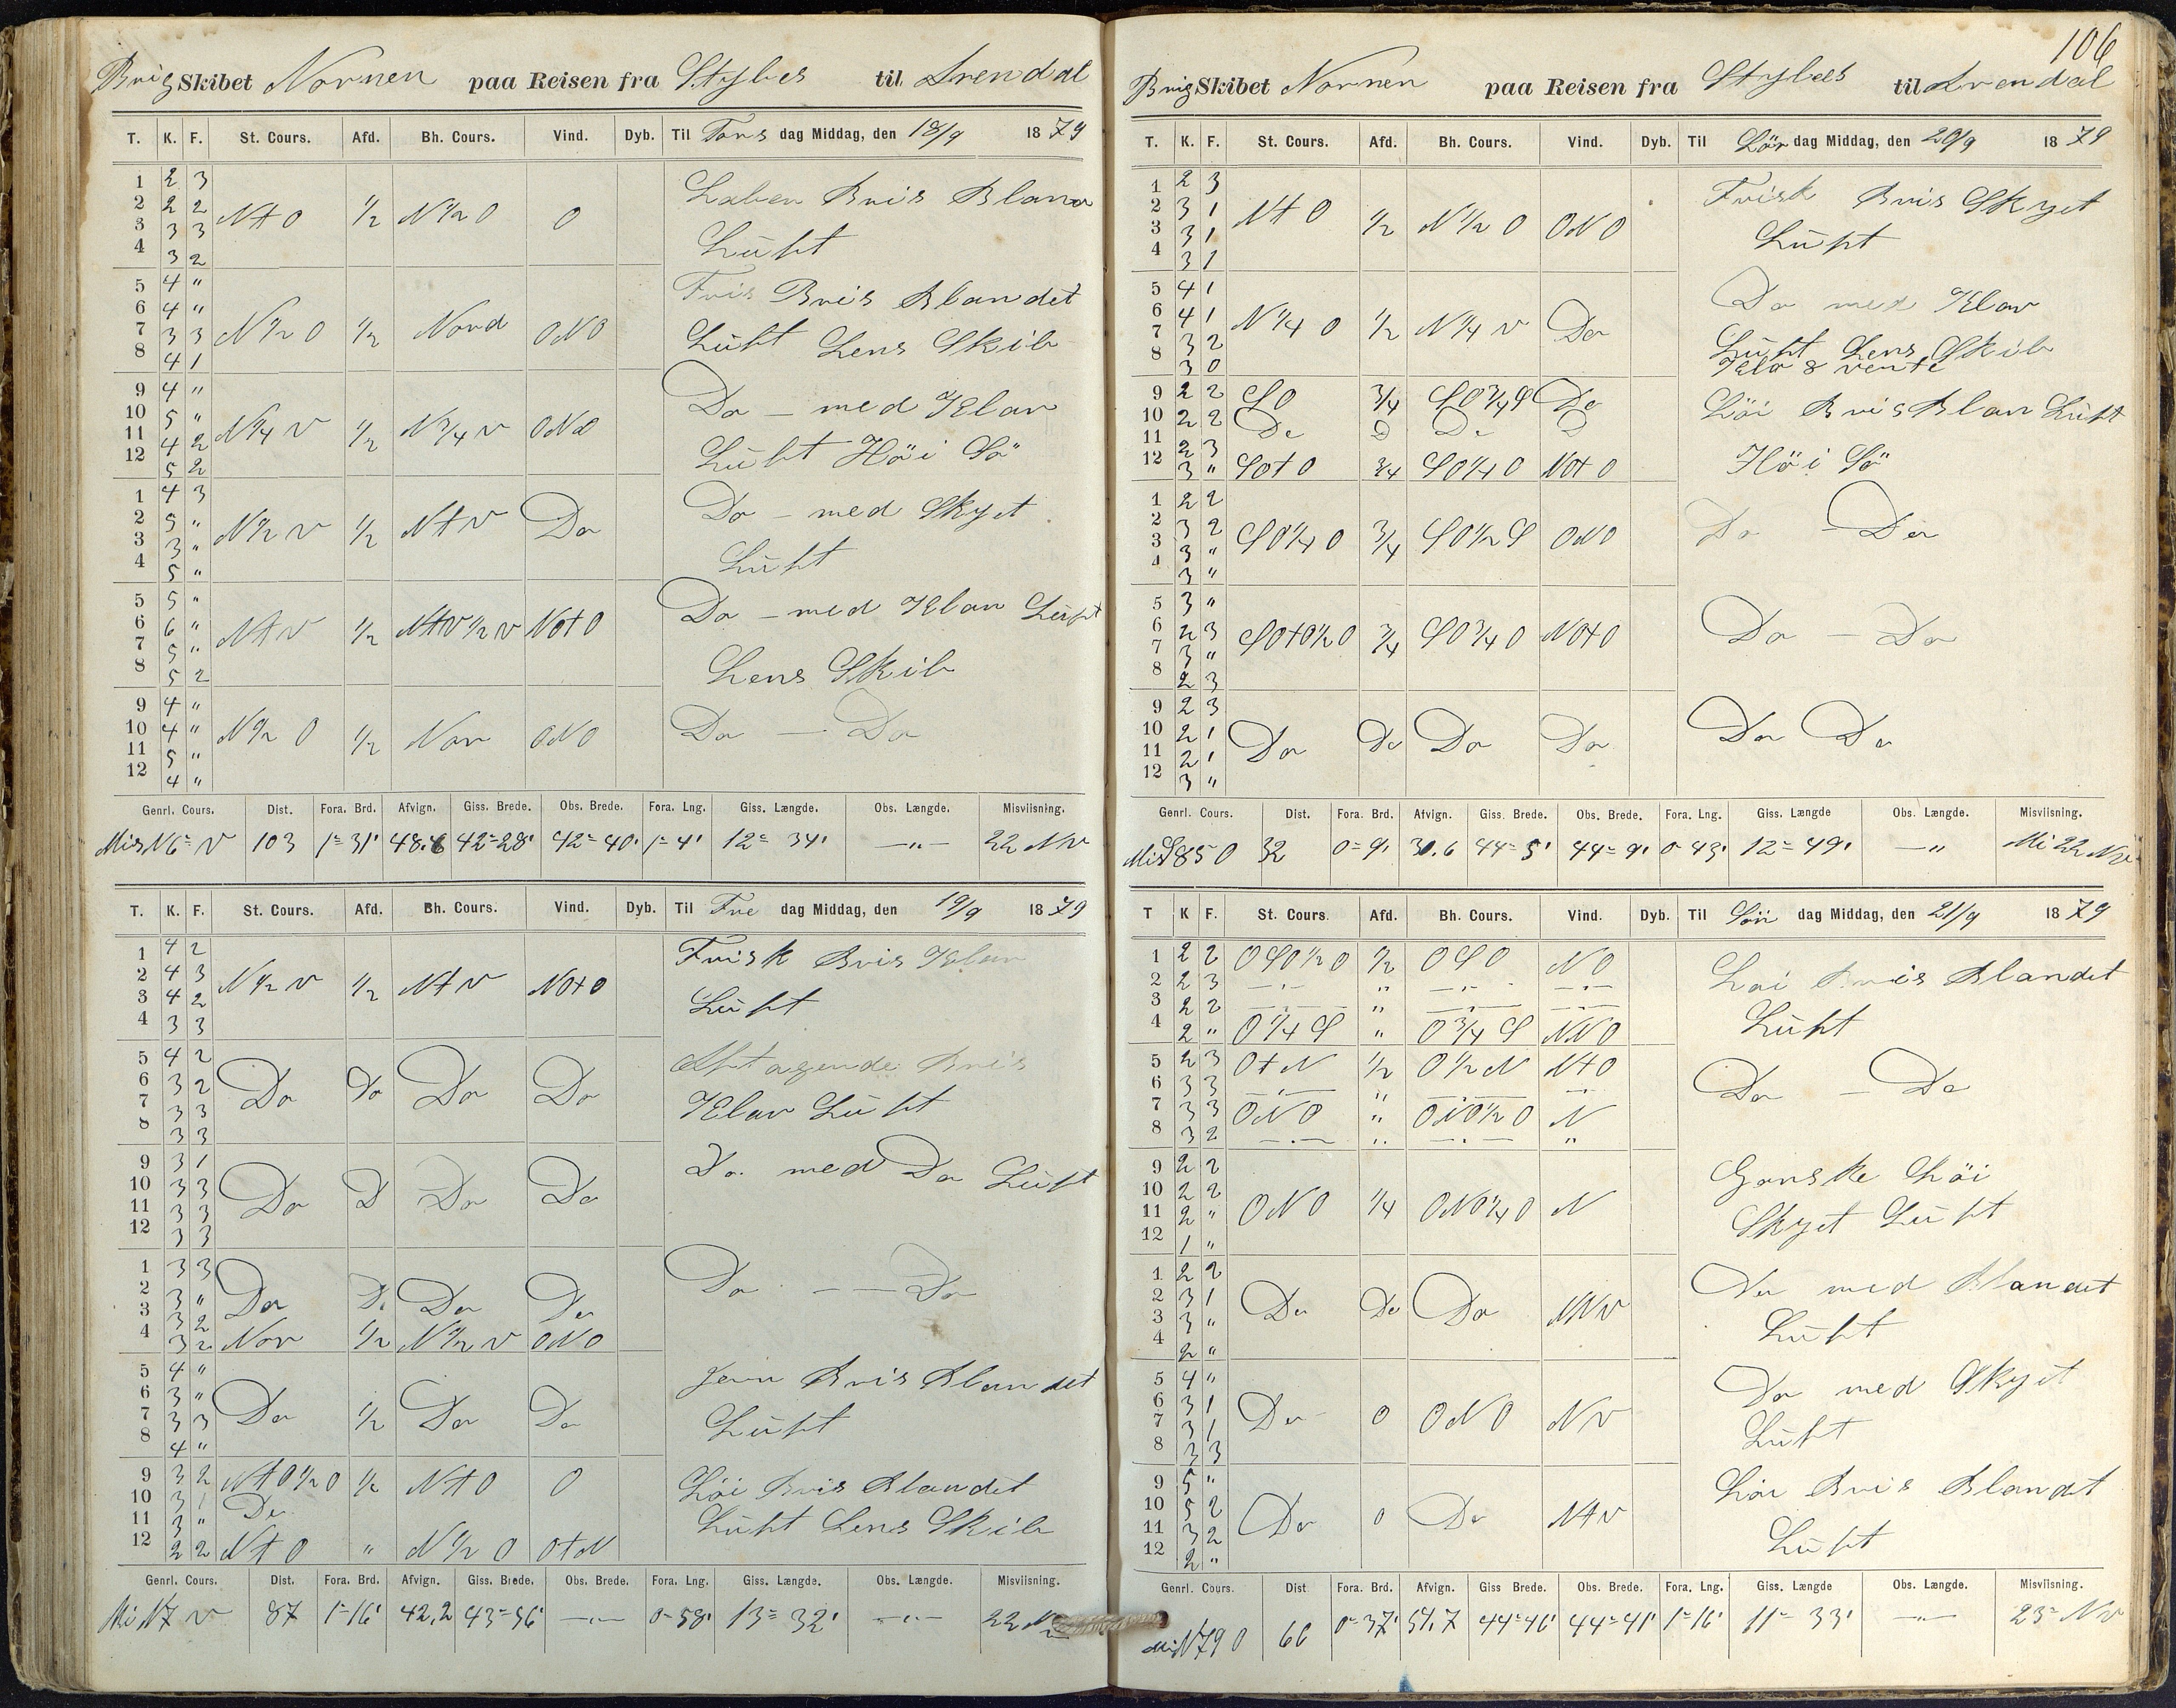 Brig Skibet Nornen paa Reisen fra Stybes til Arendal
T. K. F. St. Cours. Afd. Bh. Cours. Vind. Dyb. Til Tors dag Middag, den 18/9 1879
1 2 3
2 2 2 Nt O 1/2 N 1/2 O O Laber Bris Blana
3 3 3
4 3 2 Lüft
5 4 " Fris Bris Blandet
6 4 "
7 3 3 N 1/2 O 1/2 Nord ONO Lüft Lens Skib
8 4 1
9 4 " Do – med Klar
10 5 "
11 4 2 N 1/4 V 1/2 N 3/4 V ONO
12 5 2 Lüft Höi Sö
1 4 3 Do – med Skyet
2 5 " N 1/2 V 1/2 Nt V Do
3 3 "
4 5 " Lüft
5 5 " Do – med Klar Lüft
6 6 " Nt V 1/2 Nt V 1/2 V NOt O
7 5 "
8 5 2 Lens Skib
9 4 "
10 4 " N 1/2 O 1/2 Nor ONO Do — Do
11 5 "
12 4 "
Genrl. Cours. Dist. Fora. Brd. Afvign. Giss. Brede. Obs. Brede. Fora. Lng. Giss. Længde. Obs. Længde. Misviisning.
Mis N 6° V 103 1° 31' 48.6 42° 28' 42° 40' 1° 4' 12° 34' —"— 22 NV
T. K. F. St. Cours. Afd. Bh. Cours. Vind. Dyb. Til Fre dag Middag, den 19/9 1879
1 4 2 Frisk Bris Klar
2 4 3 N 1/2 V 1/2 Nt V NOt O
3 4 2 Lüft
4 3 3
5 4 2 Aftagende Bris
6 3 2 Do Do Do Do
7 3 3 Klar Lüft
8 3 3
9 3 1 Do. med Do Lüft
10 3 3
11 3 3 Do D Do Do
12 3 3
1 3 3
2 3 " Do D. Do Do Do — — Do
3 3 2
4 3 2 Nor 1/2 N 1/2 V ONO
5 4 " Jevn Bris Blandet
6 3 "
7 3 3 Do 1/2 Do Do Lüft
8 4 "
9 3 2 Nt O 1/2 O 1/2 Nt O O Löi Bris Blandet
10 3 1 Do
11 3 " Lüft Lens Skib
12 2 2 Nt O " N 1/2 O Ot N
Genrl. Cours. Dist. Fora. Brd. Afvign. Giss. Brede. Obs. Brede. Fora. Lng. Giss. Længde. Obs. Længde. Misviisning.
Mi N 7 V 87 1° 16' 42,2 43° 56' —"— 0° 58' 13° 32' —"— 22
106
Brig Skibet Nornen paa Reisen fra Stybes til Arendal
T. K. F. St. Cours. Afd. Bh. Cours. Vind. Dyb. Til Lör dag Middag, den 20/9 1879
1 2 3 Frisk Bris Skyet
2 3 1 Nt O 1/2 N 1/2 O ONO
3 3 1 Lüft
4 3 1
5 4 1 Do med Klar
6 4 1 N 1/4 O 1/2 N 1/4 V Do
7 3 2 Lüft Lens Skib
8 3 0
9 2 2 SO 3/4 SO 3/4 S Do Löi Bris Blan Lüft
10 2 2 Do D Do D
11 2 3 Höi Sö
12 3 " SOt O 3/4 SO 1/4 O NOt O
1 2 2
2 3 2 SO 1/4 O 3/4 SO 1/2 S ONO Do – Do
3 3 "
4 3 "
5 3 "
6 2 3 SOt O 1/2 O 3/4 SO 3/4 O NOt O Do — Do
7 3 "
8 2 3
9 2 3
10 2 1 Do Do Do Do Do Do
11 2 1
12 3 "
Genrl. Cours. Dist. Fora. Brd. Afvign. Giss. Brede. Obs. Brede. Fora. Lng. Giss. Længde Obs. Længde. Misviisning.
Mis S 85 O 32 0° 9' 30.6 44° 5' 44° 9' 0 43' 12° 49' —" Mi 22 NV
T K F. St. Cours. Afd. Bh. Cours. Vind. Dyb. Til Sön dag Middag, den 21/9 1879
1 2 2 OSO 1/2 O 1/2 OSO NO Löi Bris Blandet
2 2 3 —"— " —"— —"—
3 2 2 —"— " —"— —"— Lüft
4 2 " O 1/4 S " O 3/4 S NNO
5 2 3 Ot N 1/2 O 1/2 N Nt O
6 3 3 —"— " —"— —"— Do — Do
7 3 3 ONO " N
8 3 2 —"— " —"— "
9 2 2 Ganske Löi
10 2 2
11 2 " ONO 1/4 ONO 1/4 O N Skyet Lüft
12 1 "
1 2 2 Do med Blandet
2 3 1 Do Do Do NNV
3 3 " Lüft
4 2 "
5 4 " Do med Skyet
6 3 1 Do O ONO NV
7 3 1 Lüft
8 3 3
9 5 " Löi Bris Blandet
10 5 2
11 3 2 Do O Do Nt V Lüft
12 2 "
Genrl. Cours. Dist Fora. Brd. Afvign. Giss Brede. Obs. Brede. Fora. Lng. Giss. Længde Obs. Længde. Misviisning.
Mis N 79 O 66 0° 37' 54.7 44° 46' 44° 41' 1° 16' 11° 33' —"— 23° NV